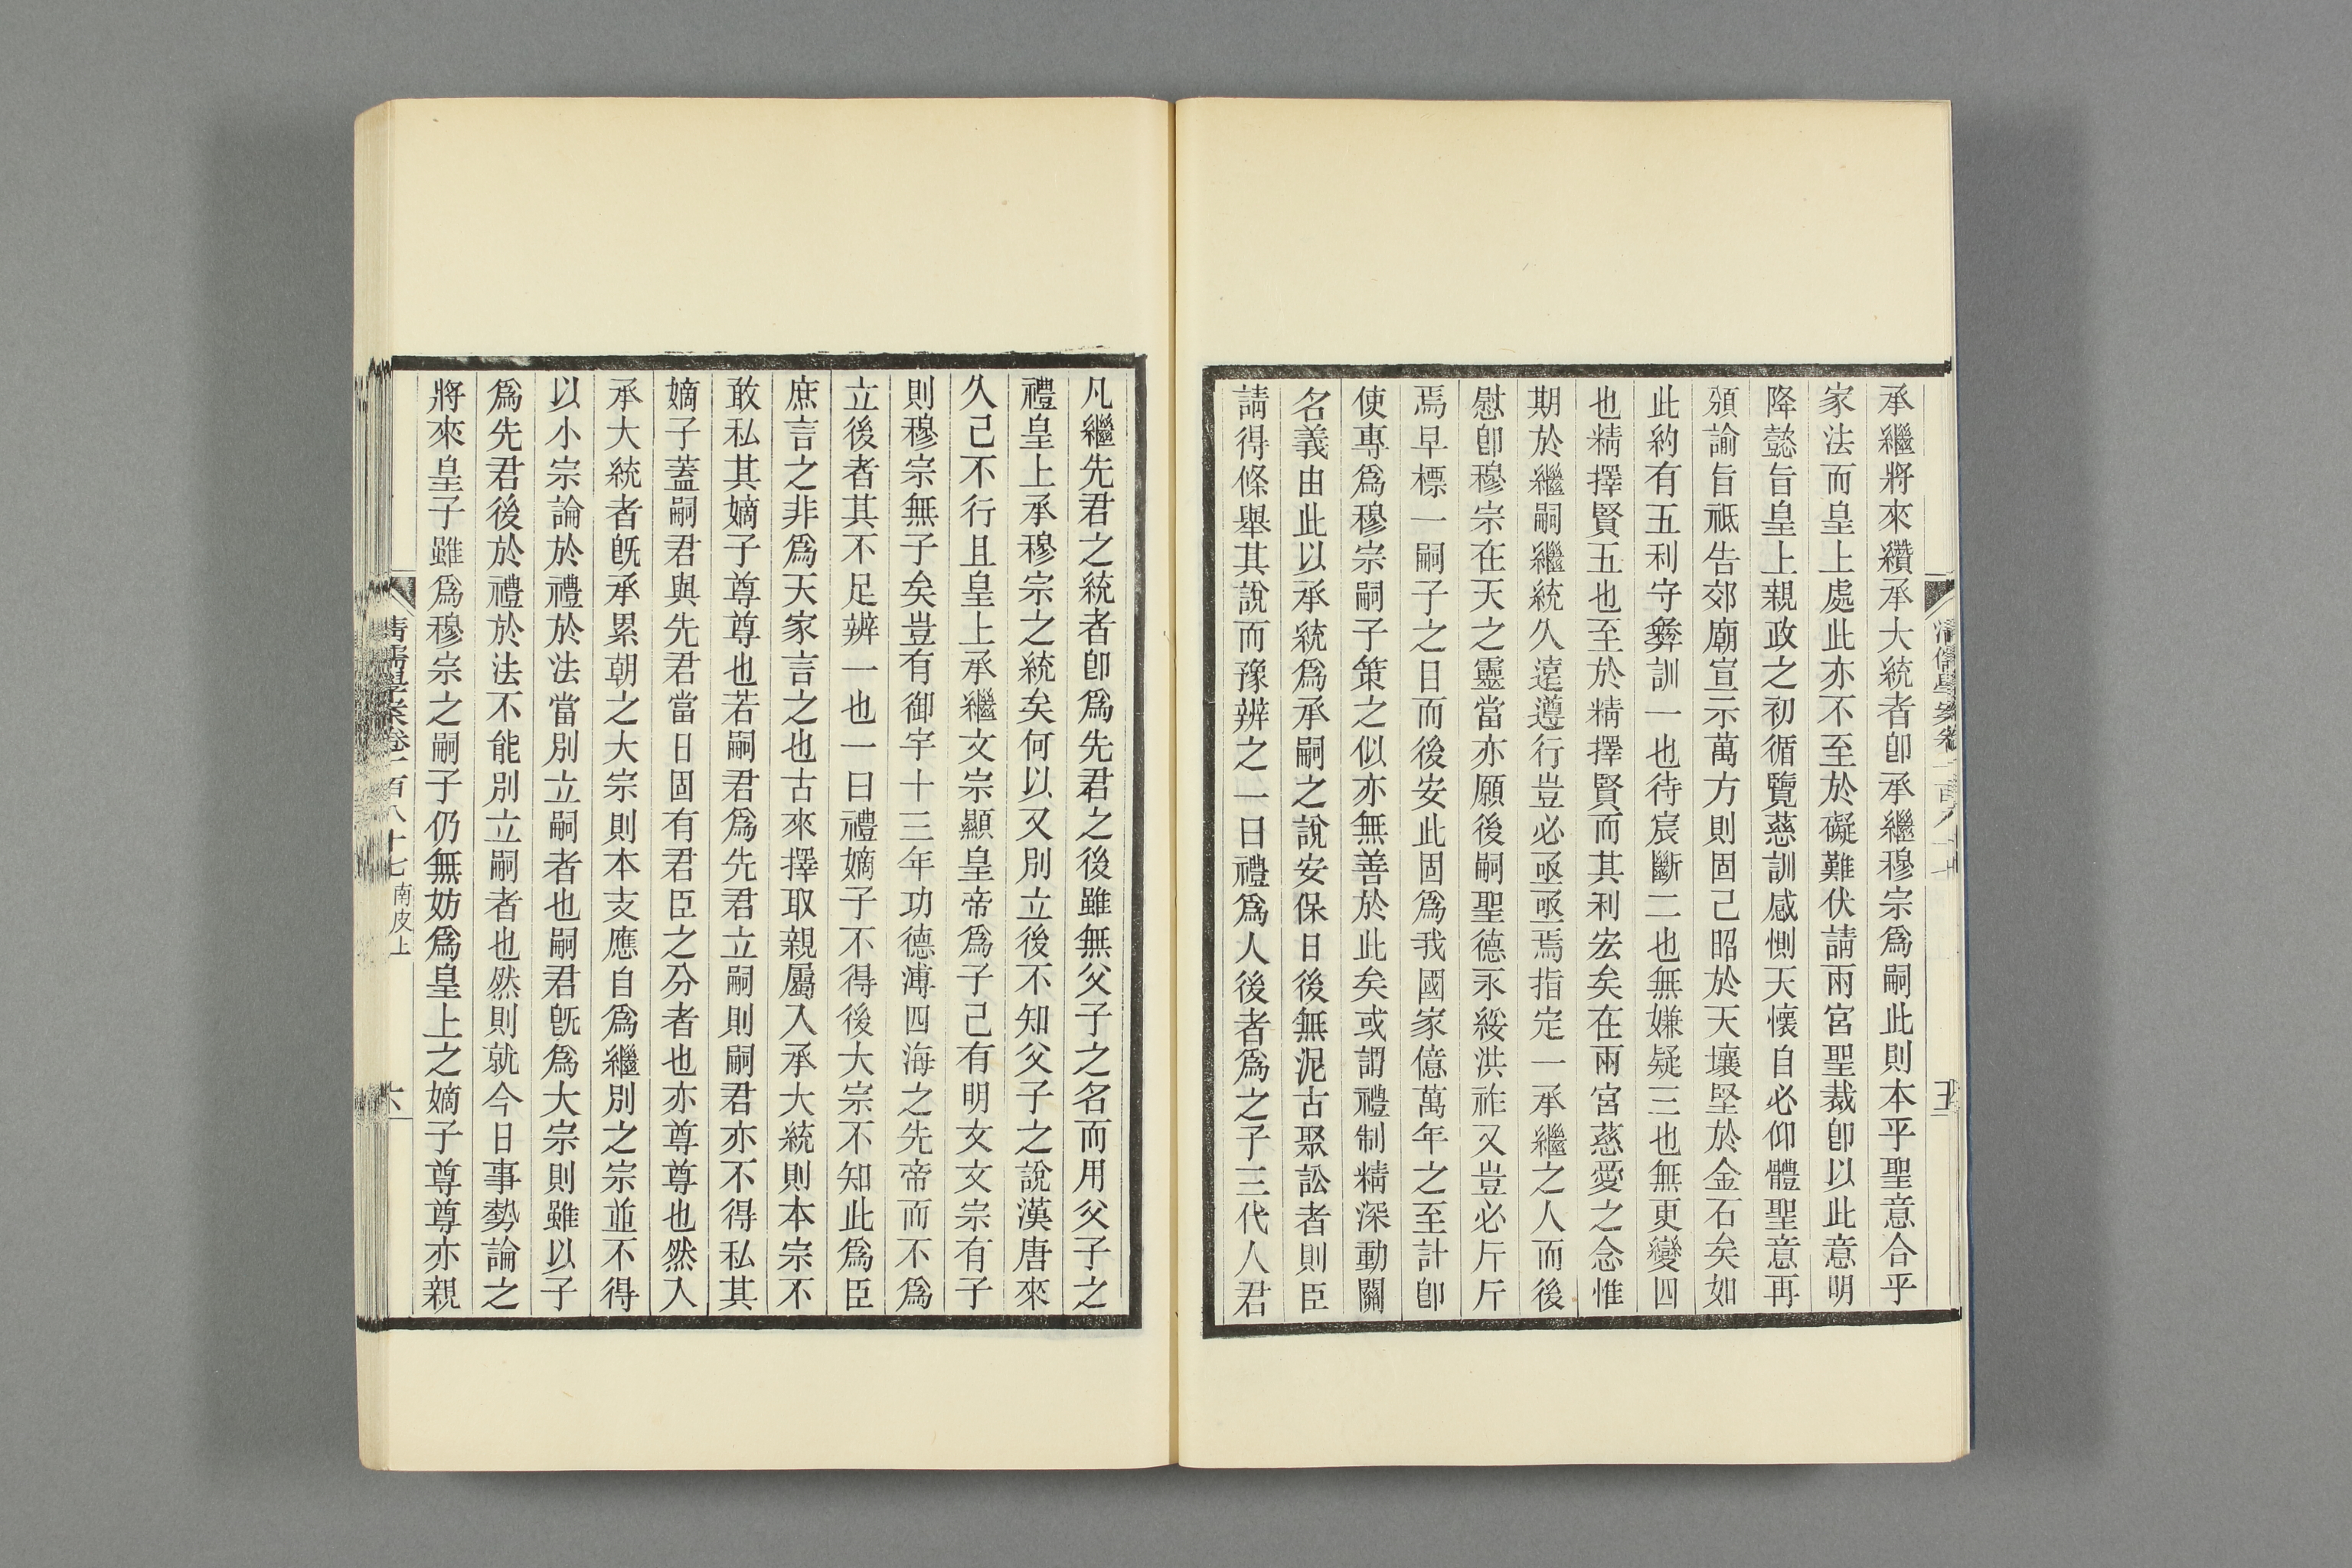 承繼將來纘承大統者卽承繼穆宗爲嗣此則本乎聖意合乎
家法而皇上處此亦不至於礙難伏請兩宮聖裁卽以此意明
降懿旨皇上親政之初循覽慈訓感惻天懷自必仰體聖意再
頒諭旨祗告郊廟宣示萬方則固已昭於天壤堅於金石矣如
此約有五利守彝訓一也待宸斷二也無嫌疑三也無更變四
也精擇賢五也至於精擇賢而其利宏矣在兩宮慈愛之念惟
期於繼嗣繼統久遠遵行豈必亟亟焉指定一承繼之人而後
慰卽穆宗在天之靈當亦願後嗣聖德永綏洪祚又豈必斤斤
焉早標一嗣子之目而後安此固爲我國家億萬年之至計卽
使專爲穆宗嗣子策之似亦無善於此矣或謂禮制精深動關
名義由此以承統爲承嗣之說安保日後無泥古聚訟者則臣
請得條舉其說而豫辨之一曰禮爲人後者爲之子三代人君
清儒學案卷一百八十七
五
凡繼先君之統者卽爲先君之後雖無父子之名而用父子之
禮皇上承穆宗之統矣何以又別立後不知父子之說漢唐來
久已不行且皇上承繼文宗顯皇帝爲子已有明文文宗有子
則穆宗無子矣豈有御宇十三年功德溥四海之先帝而不爲
立後者其不足辨一也一曰禮嫡子不得後大宗不知此爲臣
庶言之非爲天家言之也古來擇取親屬入承大統則本宗不
敢私其嫡子尊尊也若嗣君爲先君立嗣則嗣君亦不得私其
嫡子蓋嗣君與先君當日固有君臣之分者也亦尊尊也然入
承大統者旣承累朝之大宗則本支應自爲繼別之宗並不得
以小宗論於禮於法當別立嗣者也嗣君旣爲大宗則雖以子
爲先君後於禮於法不能別立嗣者也然則就今日事勢論之
將來皇子雖爲穆宗之嗣子仍無妨爲皇上之嫡子尊尊亦親
清儒學案卷一百八十七 南皮上
六